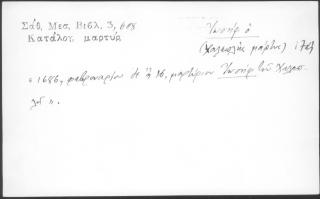 Σάθ. Μεσ. Βιβλ. 3, 608
Κατάλογ. μαρτύρ
Ἰωσὴφ ὁ
(Χαλεπλῆς μάρτυς)
« 1686, φεβρουαρίου 16, μαρτύριον Ἰωσὴφ τοῦ Χαλεπ-
λῆ ».